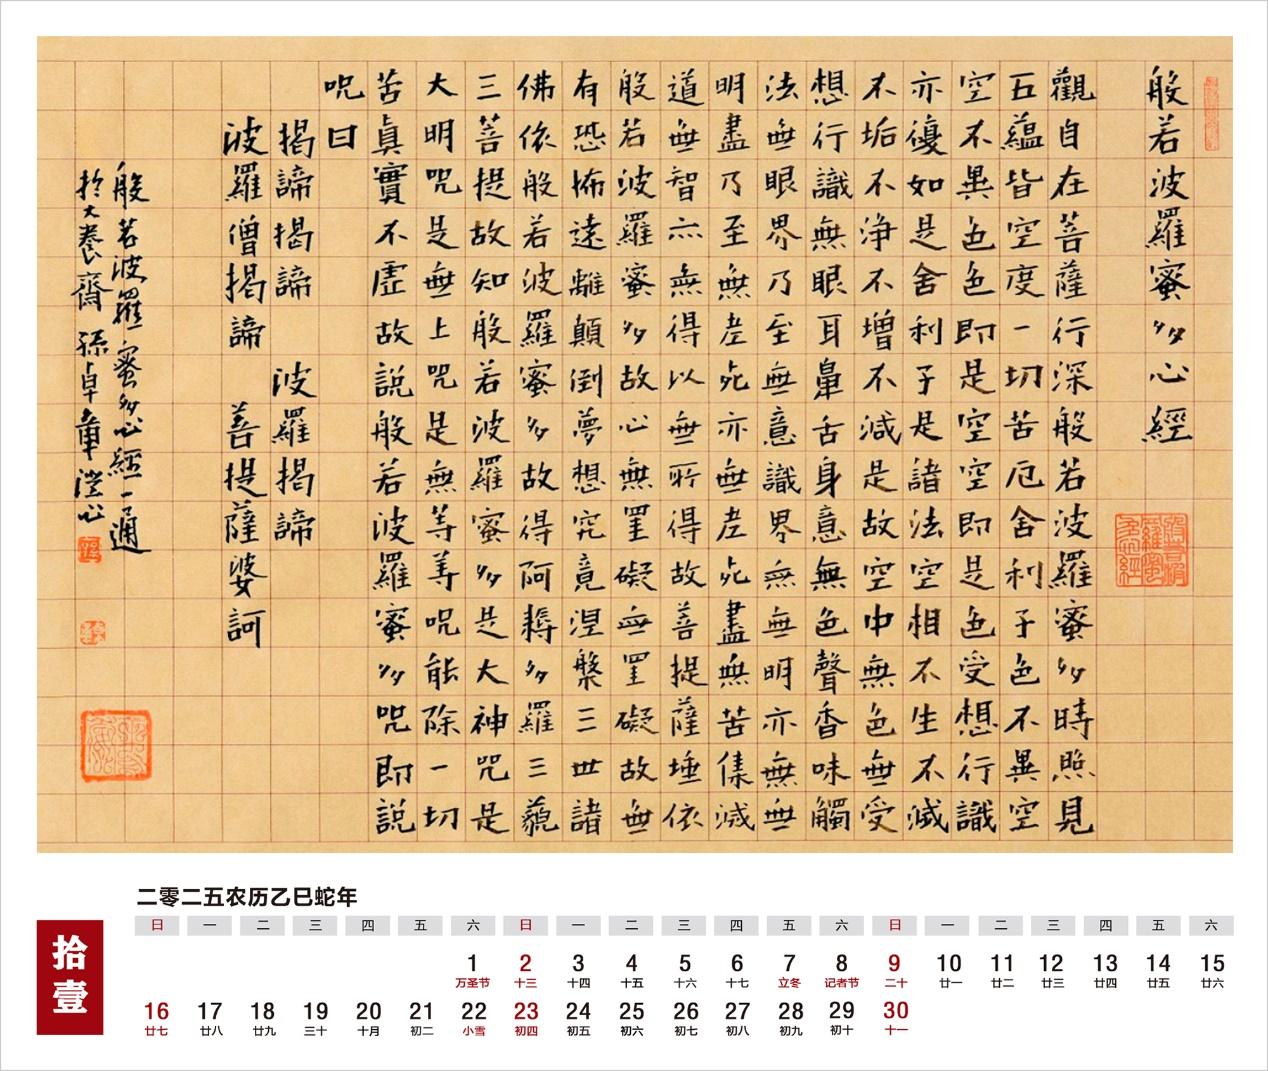 般若波羅蜜多心經
觀自在菩薩行深般若波羅蜜多時照見
五蘊皆空度一切苦厄舍利子色不異空
空不異色色即是空空即是色受想行識
亦復如是舍利子是諸法空相不生不滅
不垢不淨不增不減是故空中無色無受
想行識無眼耳鼻舌身意無色聲香味觸
法無眼界乃至無意識界無無明亦無無
明盡乃至無老死亦無老死盡無苦集滅
道無智亦無得以無所得故菩提薩埵依
般若波羅蜜多故心無罣礙無罣礙故無
有恐怖遠離顛倒夢想究竟涅槃三世諸
佛依般若波羅蜜多故得阿耨多羅三藐
三菩提故知般若波羅蜜多是大神咒是
大明咒是無上咒是無等等咒能除一切
苦真實不虛故說般若波羅蜜多咒即說
咒曰
揭諦揭諦 波羅揭諦
波羅僧揭諦 菩提薩婆訶
般若波羅蜜多心經一通
於大養齋 孫卓章澄心
二零二五农历乙巳蛇年
拾壹
日 一 二 三 四 五 六 日 一 二 三 四 五 六 日 一 二 三 四 五 六
1 2 3 4 5 6 7 8 9 10 11 12 13 14 15
万圣节 十三 十四 十五 十六 十七 立冬 记者节 二十 廿一 廿二 廿三 廿四 廿五 廿六
16 17 18 19 20 21 22 23 24 25 26 27 28 29 30
廿七 廿八 廿九 三十 十月 初二 小雪 初四 初五 初六 初七 初八 初九 初十 十一